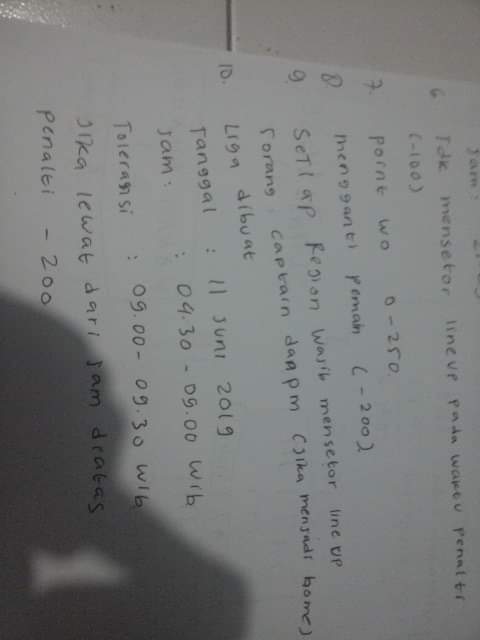 Jam :
6 Tdk mensetor lineup pada waktu penalti
(-100)
7. point wo 0-250.
8 mengganti pemain (-200)
9. Setiap Region wajib mensetor line up
1 orang captain
10. Liga dibuat
Tanggal : 11 Juni 2019
Jam : 04.30 - 09.00 wib
Toleransi : 09.00 - 09.30 wib
Jika lewat dari jam diatas
penalti - 200